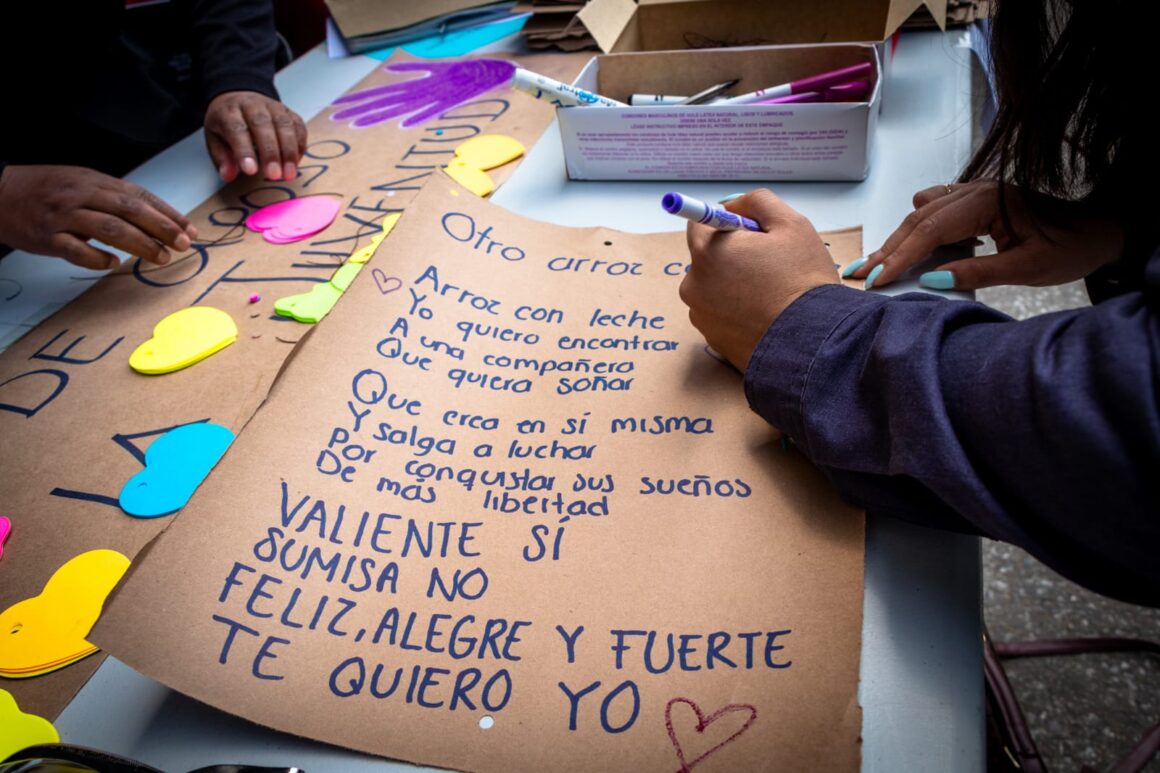 Otro arroz c
Arroz con leche
Yo quiero encontrar
A una compañera
Que quiera soñar
Que crea en sí misma
Y salga a luchar
Por conquistar sus sueños
De más libertad
VALIENTE SÍ
SUMISA NO
FELIZ, ALEGRE Y FUERTE
TE QUIERO YO
DE
LA
JUVENTUD
CONDONES MASCULINOS DE HULE LATEX NATURAL, LISOS Y LUBRICADOS